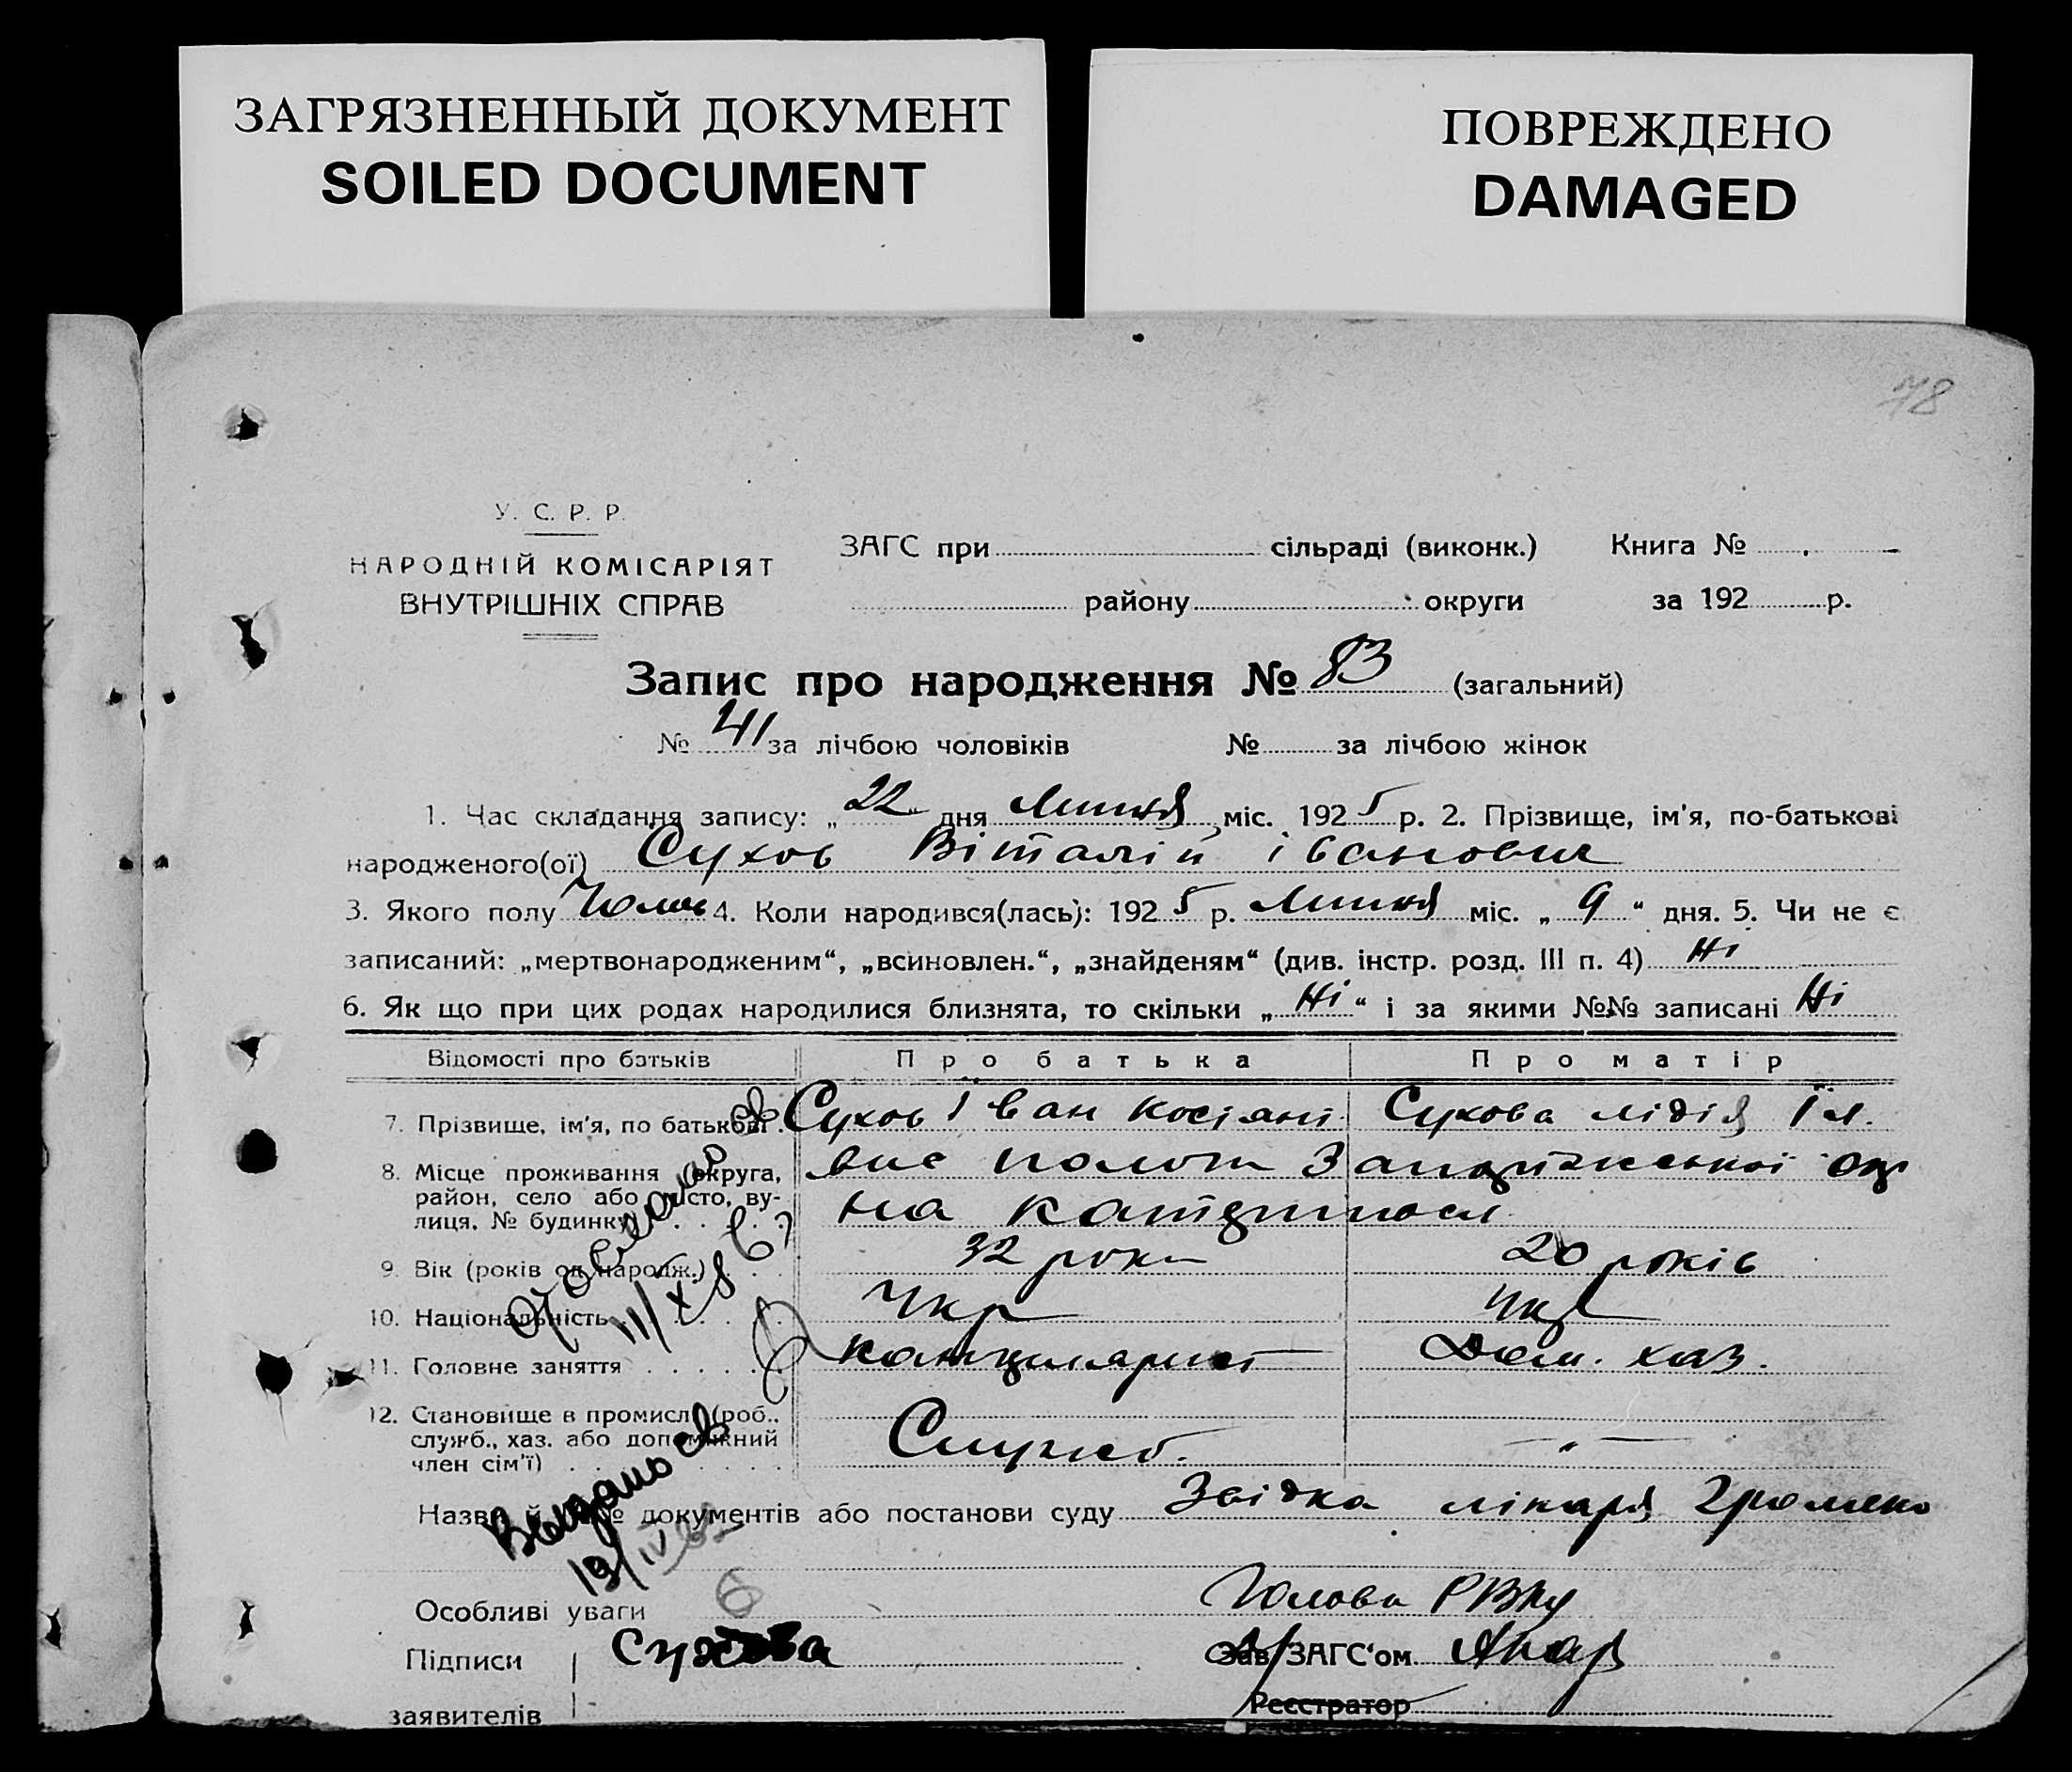 ЗАГРЯЗНЕННЫЙ ДОКУМЕНТ
SOILED DOCUMENT
ПОВРЕЖДЕНО
DAMAGED
78
У. С. Р. Р.
НАРОДНІЙ КОМІСАРІЯТ
ВНУТРІШНІХ СПРАВ
ЗАГС при сільраді (виконк.) Книга №
району округи за 192 р.
Запис про народження № 83 (загальний)
№ 41 за лічбою чоловіків № за лічбою жінок
1. Час складання запису: „22" дня Липня міс. 1925 р. 2. Прізвище, ім'я, по-батькові
народженого(ої) Сухов Віталій Іванович
3. Якого полу Чолов 4. Коли народився(лась): 1925 р. Липня міс. „9" дня. 5. Чи не є
записаний: „мертвонародженим“, „всиновлен.“, „знайденям“ (див. інстр. розд. III п. 4) Ні
6. Як що при цих родах народилися близнята, то скільки „Ні“ і за якими №№ записані Ні
Відомості про батьків Про батька Про матір
7. Прізвище, ім'я, по батькові Сухов Іван Сухова Лідія Іл.
8. Місце проживання (округа,
район, село або місто, ву-
лиця, № будинку)
на
9. Вік (років од народж.) 32 роки 20 років
10. Національність Укр Укр
11. Головне заняття Канцелярист Дом. хаз.
12. Становище в промислі (роб.,
служб., хаз. або допоміжний
член сім'ї) Служб. -"-
Назви й №№ документів або постанови суду Звідка лікаря
Выдано св
13/IV
Особливі уваги 6
Голова РВК
Підписи Сухова Зав/ЗАГС'ом
заявителів Реєстратор